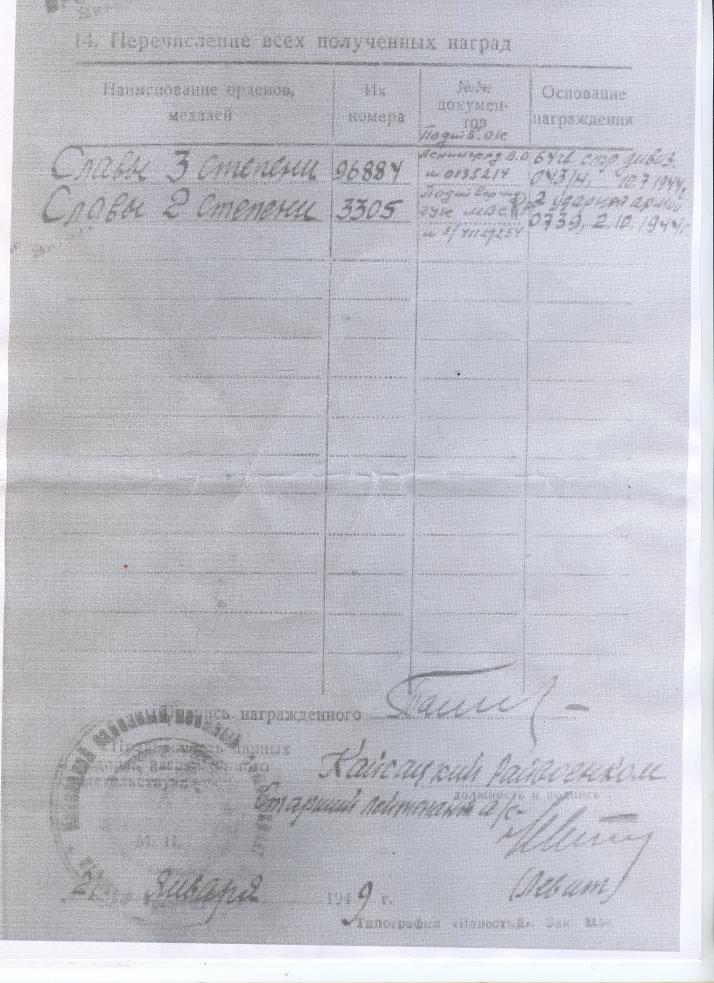 14. Перечисление всех полученных наград
Наименование орденов, медалей
Их номера
№№ документов
Основание награждения
Славы 3 степени
96884
Ленинград В.О.
и 0135214
64 гв. стр. дивиз.
043/н, 10.7 1944г.
Славы 2 степени
3305
2 ударной армии
0739, 2.10.1944г.
Подпись награжденного
Кайсацкий Райвоенком
должность и подпись
Старший лейтенант а/с
(Левит)
21 Января 1949 г.
Типография «Известий». Зак.